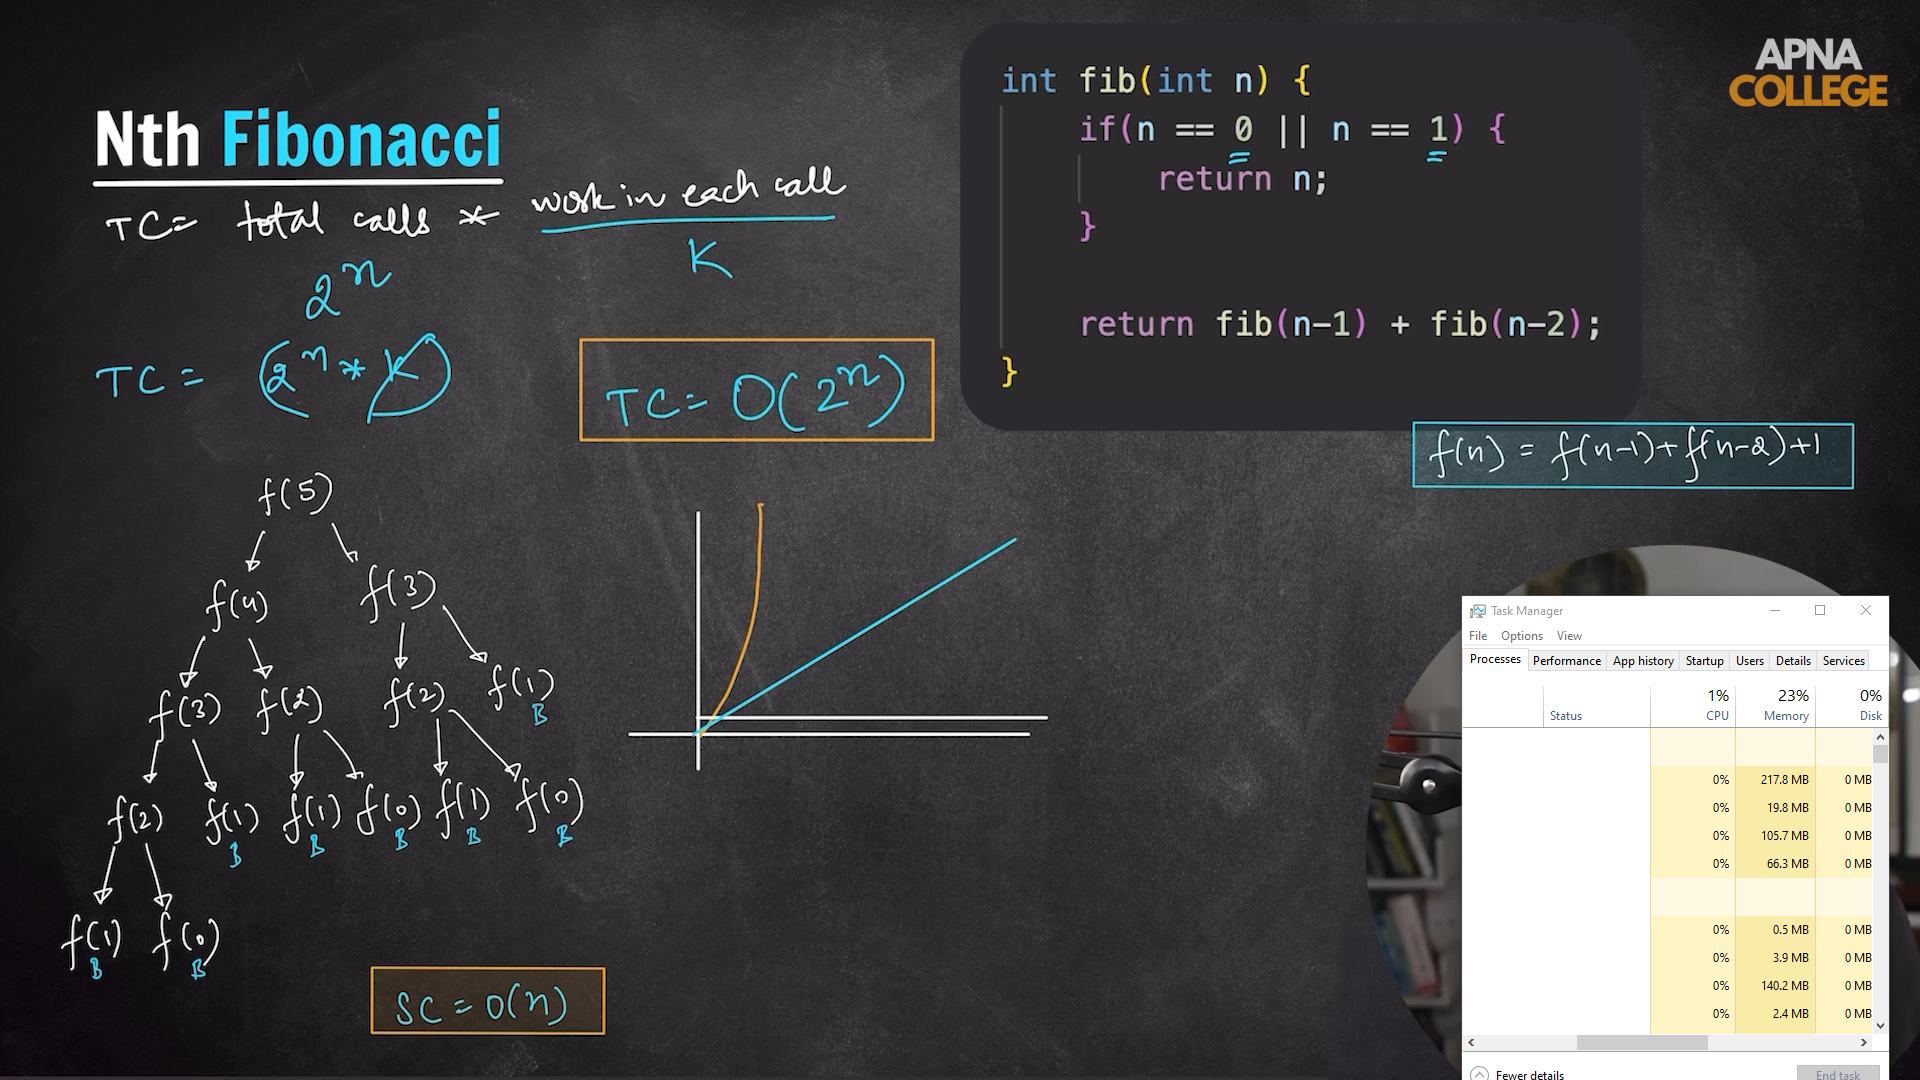 APNA
COLLEGE
Nth Fibonacci
TC = total calls * work in each call
2^n
K
TC = (2^n * K)
TC = O(2^n)
int fib(int n) {
if(n == 0 || n == 1) {
return n;
}
return fib(n-1) + fib(n-2);
}
f(n) = f(n-1)+f(n-2)+1
f(5)
f(4) f(3)
f(3) f(2) f(2) f(1)
B
f(2) f(1) f(1) f(0) f(1) f(0)
B B B B B
f(1) f(0)
B B
SC = O(n)
Task Manager
File Options View
Processes Performance App history Startup Users Details Services
1% 23% 0%
Status CPU Memory Disk
0% 217.8 MB 0 MB
0% 19.8 MB 0 MB
0% 105.7 MB 0 MB
0% 66.3 MB 0 MB
0% 0.5 MB 0 MB
0% 3.9 MB 0 MB
0% 140.2 MB 0 MB
0% 2.4 MB 0 MB
Fewer details End task